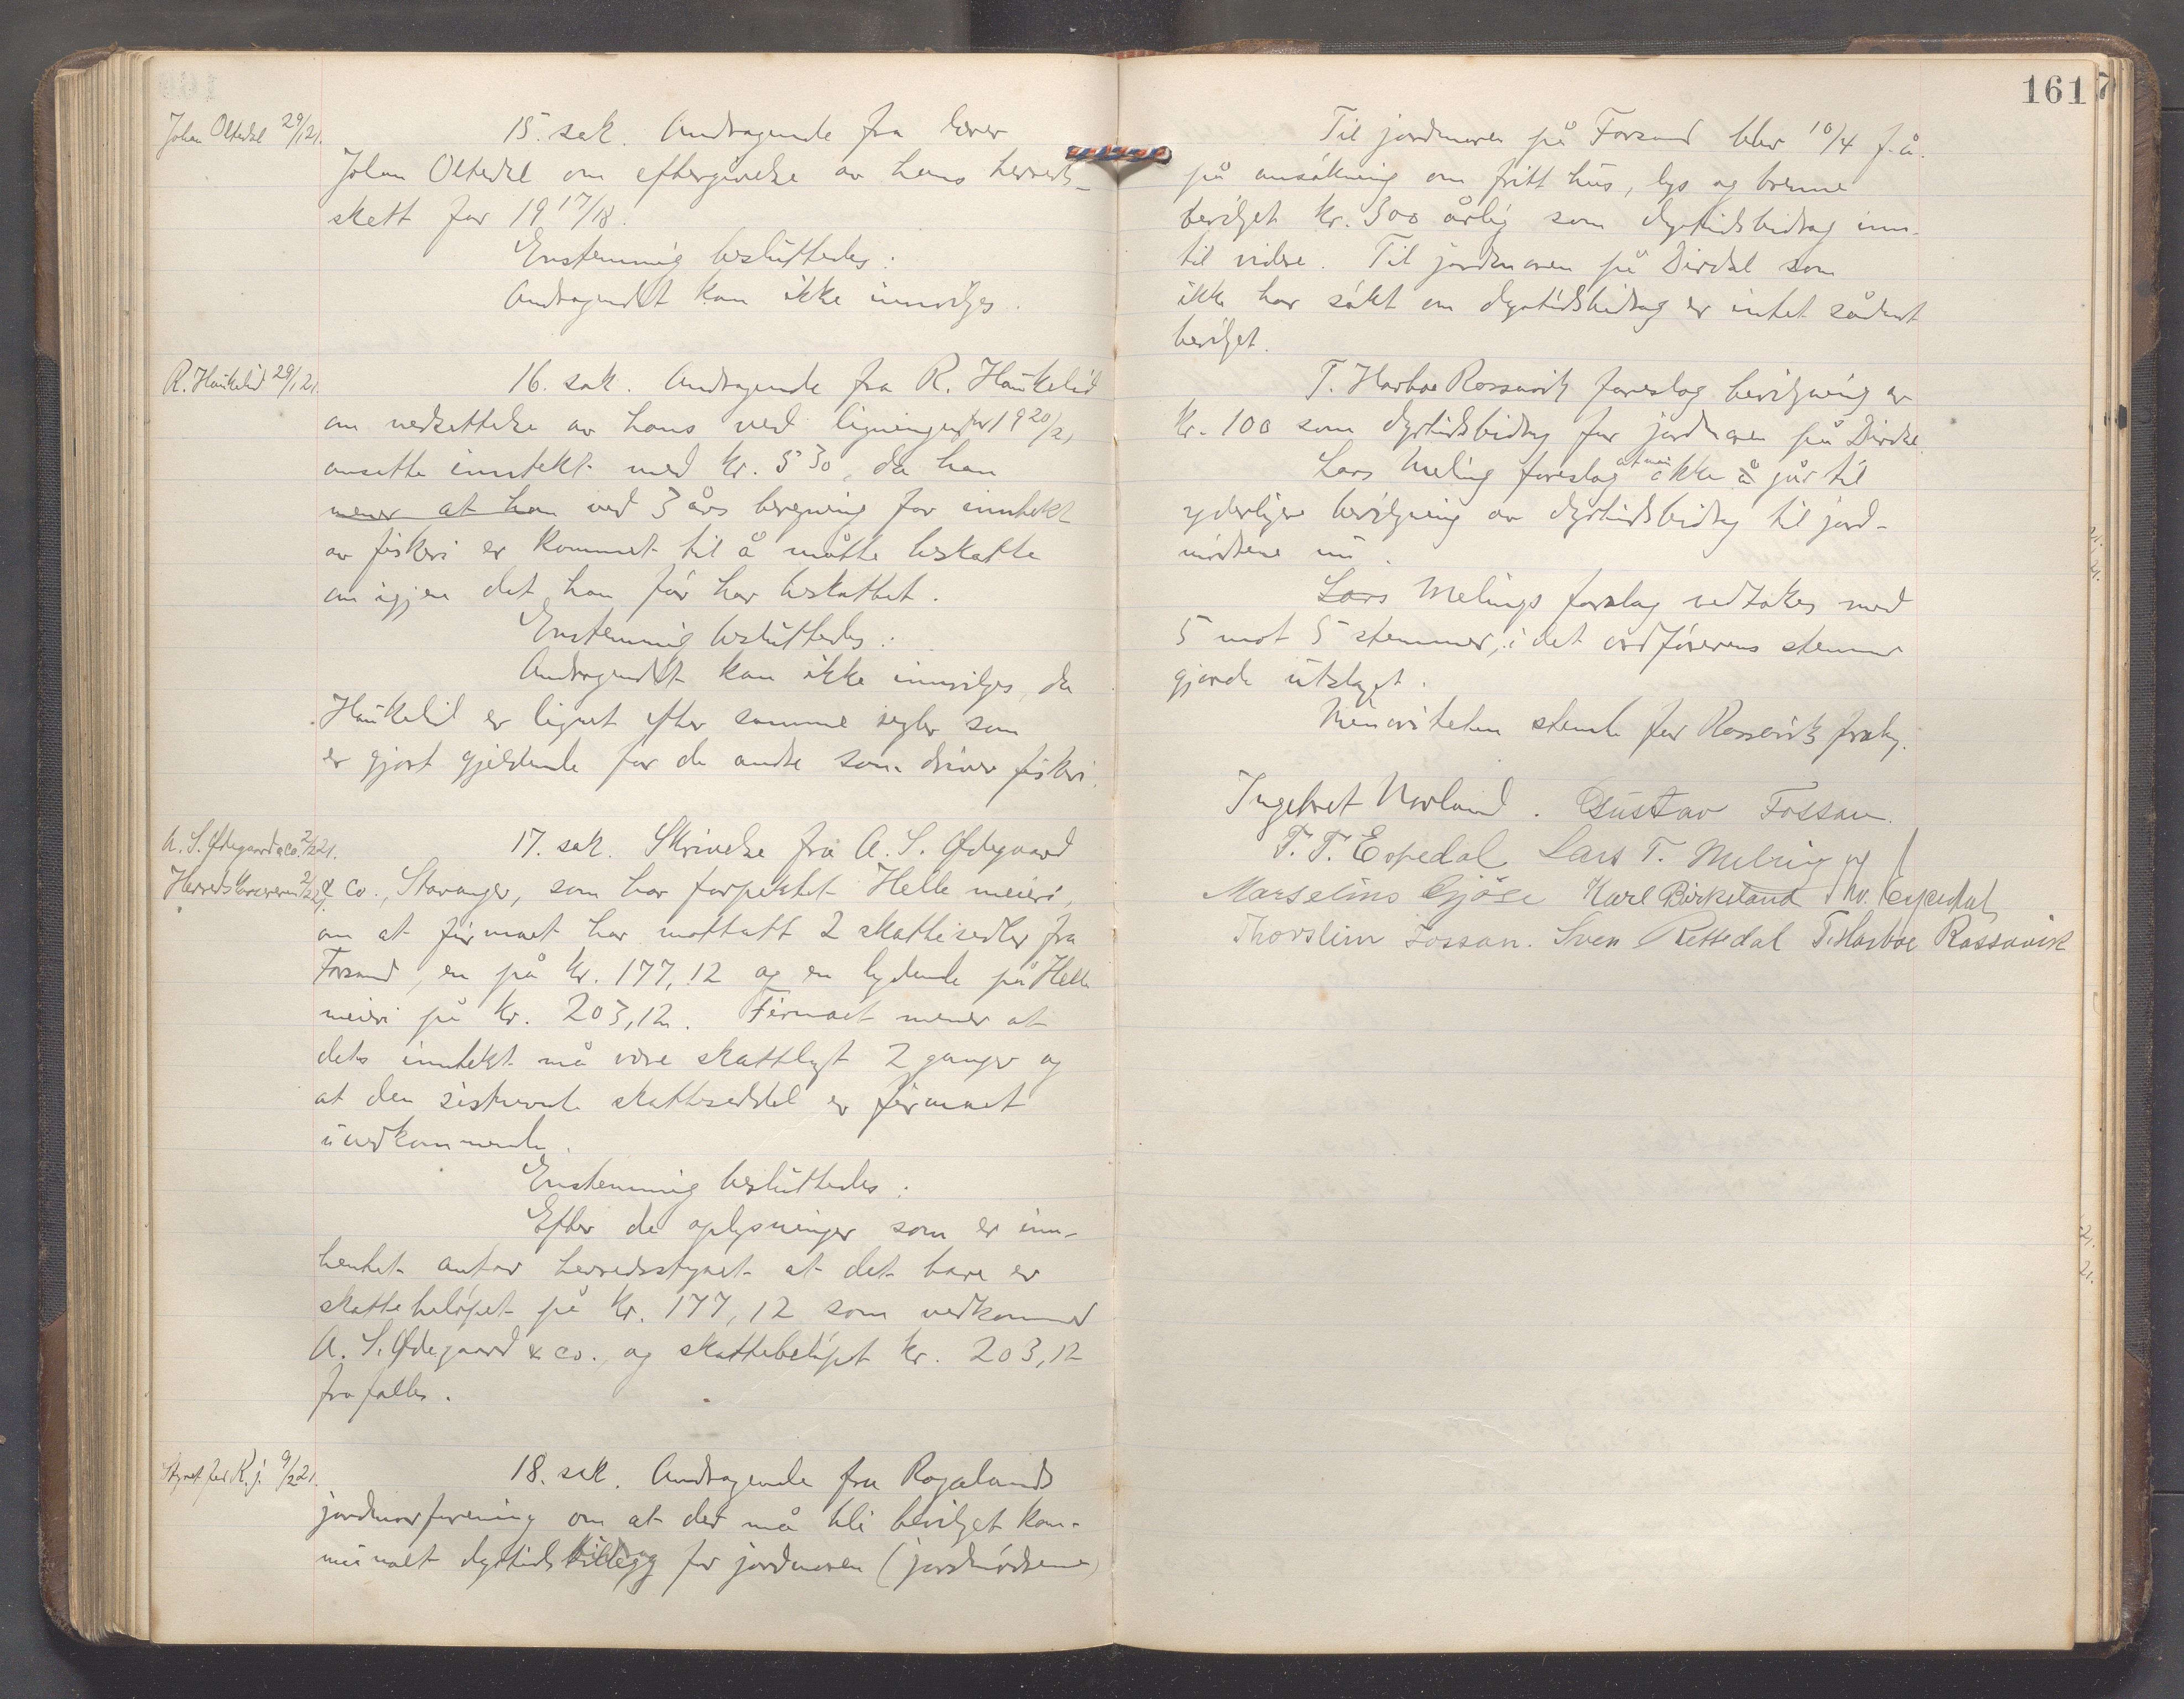 Johan Oltedal 29/1 21.
15. sak. Andragende fra lærer
Johan Oltedal om eftergivelse av hans herreds-
skatt for 1917/18.
Enstemmig besluttedes:
Andragendet kan ikke innvilges.
R. Haukelid 29/1 21.
16. sak. Andragende fra R. Haukelid
om nedsettelse av hans ved ligningen for 1920/21
ansatte inntekt med kr. 530, da han
mener at han ved 3 års beregning for inntekt
av fiskeri er kommet til å måtte beskatte
om igjen det han før har beskattet.
Enstemmig besluttedes:
Andragendet kan ikke innvilges, da
Haukelid er lignet efter samme regler som
er gjort gjeldende for de andre som driver fiskeri.
A. S. Ødegaard & co. 2/2 21.
Herredskasereren 2/2 21.
17. sak. Skrivelse fra A. S. Ødegaard
& Co., Stavanger, som har forpaktet Helle meieri,
om at firmaet har mottatt 2 skattesedler fra
Forsand, en på kr. 177,12 og en lydende på Helle
meieri på kr. 203,12. Firmaet mener at
dets inntekt må være skattlagt 2 ganger og
at den sistnevnte skatteseddel er firmaet
uvedkommende.
Enstemmig besluttedes:
Efter de oplysninger som er inn-
hentet antar herredsstyret at det bare er
skattebeløpet på kr. 177,12 som vedkommer
A. S. Ødegaard & co., og skattebeløpet kr. 203,12
frafalles.
Styret for R. j. 9/2 21.
18. sak. Andragende fra Rogalands
jordmorforening om at der må bli bevilget kom-
munalt dyrtidstillegg for jordmoren (jordmødrene)
161
Til jordmoren på Forsand blev 10/4 f. å.
på ansøkning om fritt hus, lys og brenne
bevilget kr. 300 årlig som dyrtidsbidrag inn-
til videre. Til jordmoren på Dirdal som
ikke har søkt om dyrtidsbidrag er intet sådant
bevilget.
T. Harboe Rossavik foreslog bevilgning av
kr. 100 som dyrtidsbidrag for jordmoren på Dirdal.
Lars Meling foreslog at man ikke å går til
yderligere bevilgning av dyrtidsbidrag til jord-
mødrene nu.
Lars Melings forslag vedtokes med
5 mot 5 stemmer, i det ordførerens stemme
gjorde utslaget.
Minoriteten stemte for Rossaviks forslag.
Ingebret Norland. Gustav Fossan.
T. T. Espedal Lars T. Meling
Marselius Gjøse Karl Birkeland Thv. Espedal
Thorstein Fossan. Sven Rettedal T. Harboe Rossavik